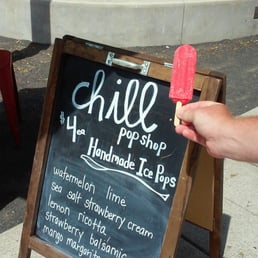 chill
popshop
$4ea
Handmade Ice Pops
watermelon lime
sea salt strawberry cream
lemon ricotta
strawberry balsamic
mango margarita